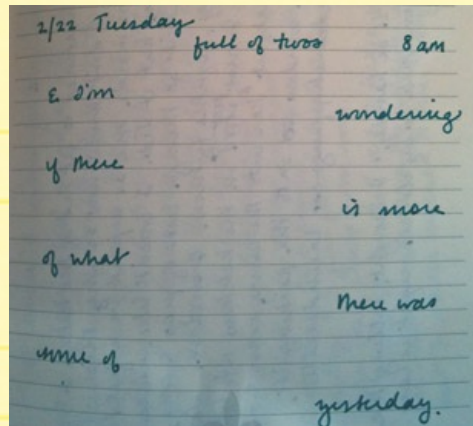 2/22 Tuesday
full of twos 8 am
& I'm
wondering
if there
is more
of what
there was
some of
yesterday.